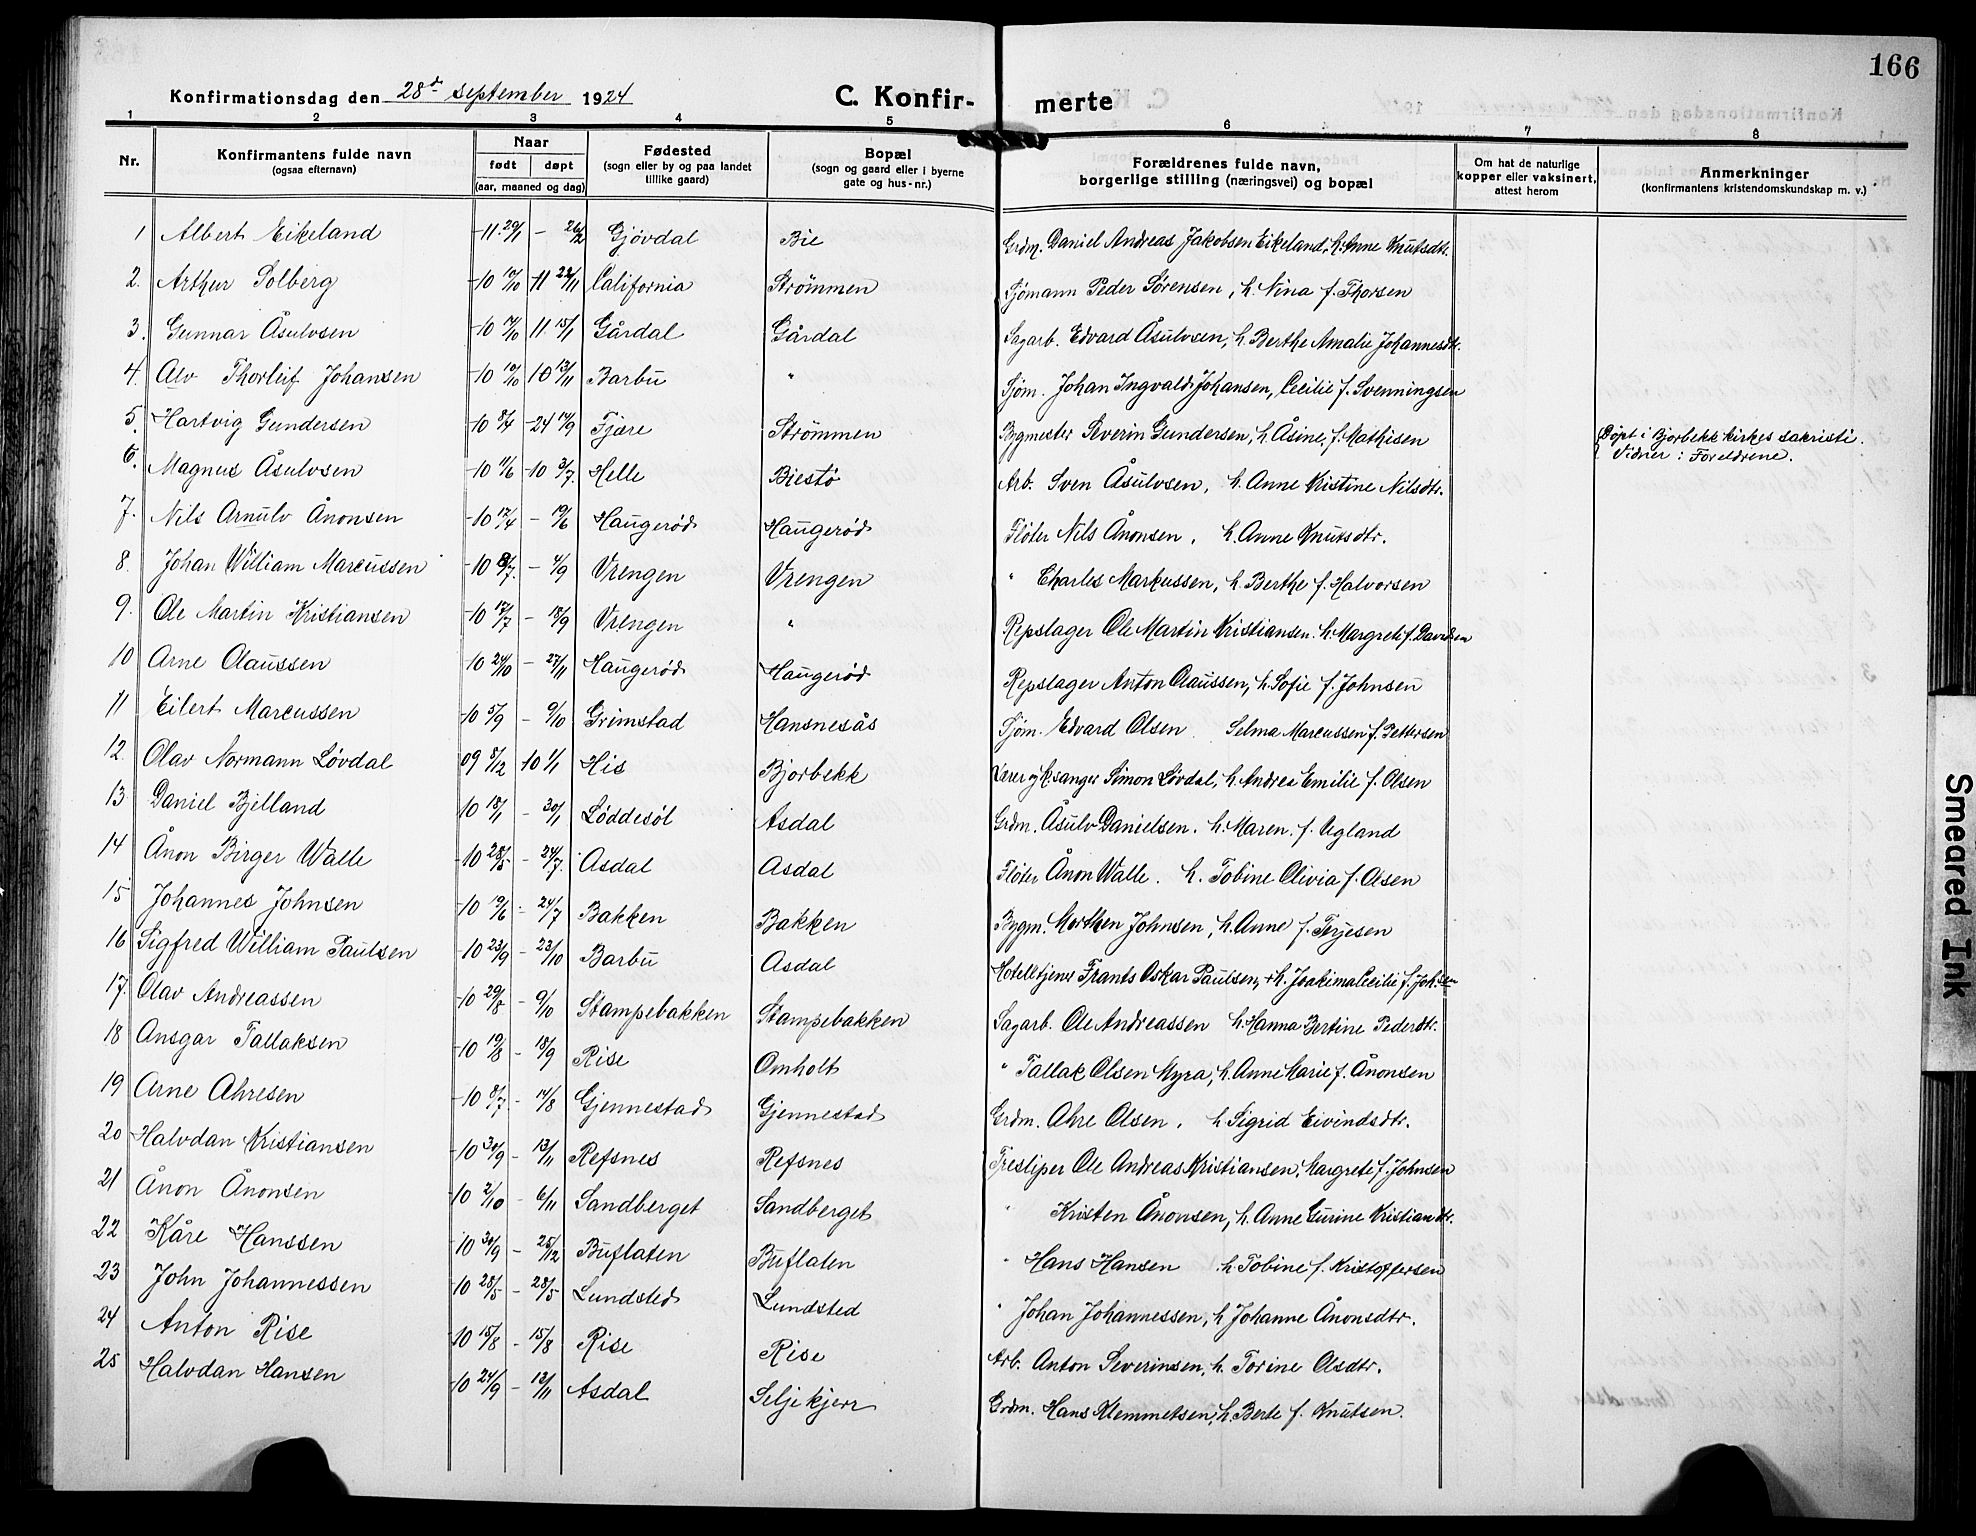 166
Konfirmationsdag den 28d september 1924
C. Konfir- merte
1 2 3 4 5 6 7 8
Nr.
Konfirmantens fulde navn
(ogsaa efternavn)
Naar
født døpt
(aar, maaned og dag)
Fødested
(sogn eller by og paa landet
tillike gaard)
Bopæl
(sogn og gaard eller i byerne
gate og hus-nr.)
Forældrenes fulde navn,
borgerlige stilling (næringsvei) og bopæl
Om hat de naturlige
kopper eller vaksinert,
attest herom
Anmerkninger
(konfirmantens kristendomskundskap m. v.)
1 Albert Eikeland -11 29/1 - 26/2 Gjövdal Bie Grdm. Daniel Andreas Jakobsen Eikeland, h. Anne Knutsdtr.
2. Arthur Solberg -10 -11 22/11 California Strömmen Sjömann Peder Sørensen, h. Nina f. Thorsen
3. Gunnar Åsulvsen -10 11 15/1 Gårdal Gårdal Sagarb. Edvard Åsulvsen, h. Berthe Amalie Johannesdtr.
4. Alv Thorleif Johansen -10 10 13/11 Barbu " Sjøm. Johan Ingvald Johansen, Cecilie f. Svenningsen
5. Hartvig Gundersen -10 8/4 -24 14/9 Fjære Strömmen Bygmester Severin Gundersen, h. Åsine, f. Mathisen Döpt i Bjorbekk kirkes sakristi. Vidner: Foreldrene.
6. Magnus Åsulvsen -10 11/6 10 3/7. Helle Biestö Arb. Sven Åsulvsen, h. Anne Kristine Nilsdtr.
7. Nils Arnulv Ånonsen -10 17/4 - 19/6 Haugerød Haugerød Fløter Nils Ånonsen, h. Anne Knutsdtr.
8. Johan William Marcussen -10 8/7. - 4/9 Vrengen Vrengen " Charles Markussen, h. Berthe f. Halvorsen
9. Ole Martin Kristiansen -10 17/7 - 18/9 Vrengen " Repslager Ole Martin Kristiansen. h. Margrete f. Davidsen
10 Arne Olaussen -10 24/10 - 27/11 Haugerød Haugerød Repslager Anton Olaussen, h. Sofie f. Johnsen
11 Eilert Marcussen -10 5/9 - 9/10 Grimstad Hansnesås Sjøm. Edvard Olsen Selma Marcussen f. Pettersen
12. Olav Normann Løvdal 09 8/12 10 1/1 His Bjorbekk Simon Løvdal, h. Andrea Emilie f. Olsen
13 Daniel Bjelland -10 18/1 - 30/1 Løddesöl Asdal Grdm. Åsulv Danielsen. h. Maren. f. Ugland
14 Ånon Birger Walle -10 28/5 - 24/7. Asdal Asdal Fløter Ånon Walle. h. Tobine Olivia f. Olsen
15 Johannes Johnsen -10 19/6 - 24/7 Bakken Bakken Bygm. Morthen Johnsen, h. Anne f. Terjesen
16 Sigfred William Paulsen -10 23/9 - 23/10 Barbu Asdal Hotelltjener Frants Oskar Paulsen, h. Joakima Cecilie f. Johsen
17. Olav Andreassen -10 29/8 - 9/10 Stampebakken Stampebakken Sagarb. Ole Andreassen h. Hanna Bertine Pedersdtr.
18 Ansgar Tallaksen -10 19/8 - 18/9 Rise Omholt " Tallak Olsen Myra, h. Anne Marie f. Ånonsen
19 Arne Ahresen -10 8/7 - 14/8 Gjennestad Gjennestad Grdm. Ahre Olsen, h Sigrid Eivindsdtr.
20 Halvdan Kristiansen -10 30/9 - 13/11 Refsnes Refsnes Tresliper Ole Andreas Kristiansen, Margrete f. Johnsen
21 Ånon Ånonsen -10 2/10 - 6/11 Sandberget Sandberget " Kristen Ånonsen, h. Anne Gurine Kristiansdtr.
22 Kåre Hanssen -10 30/9 - 25/12 Buflaten Buflaten " Hans Hansen h. Tobine f. Kristoffersen
23 John Johannessen -10 28/5 - 28/5 Lundsted Lundsted " Johan Johannessen, h Johanne Ånonsdtr.
24 Anton Rise -10 15/8 - 15/8 Rise Rise Arb. Anton Severinsen, h. Torine Olsdtr.
25 Halvdan Hansen -10 24/9 - 13/11 Asdal Seljekjerr Grdm. Hans Klemmetsen, h. Berte f. Knutsen.
Smeared Ink